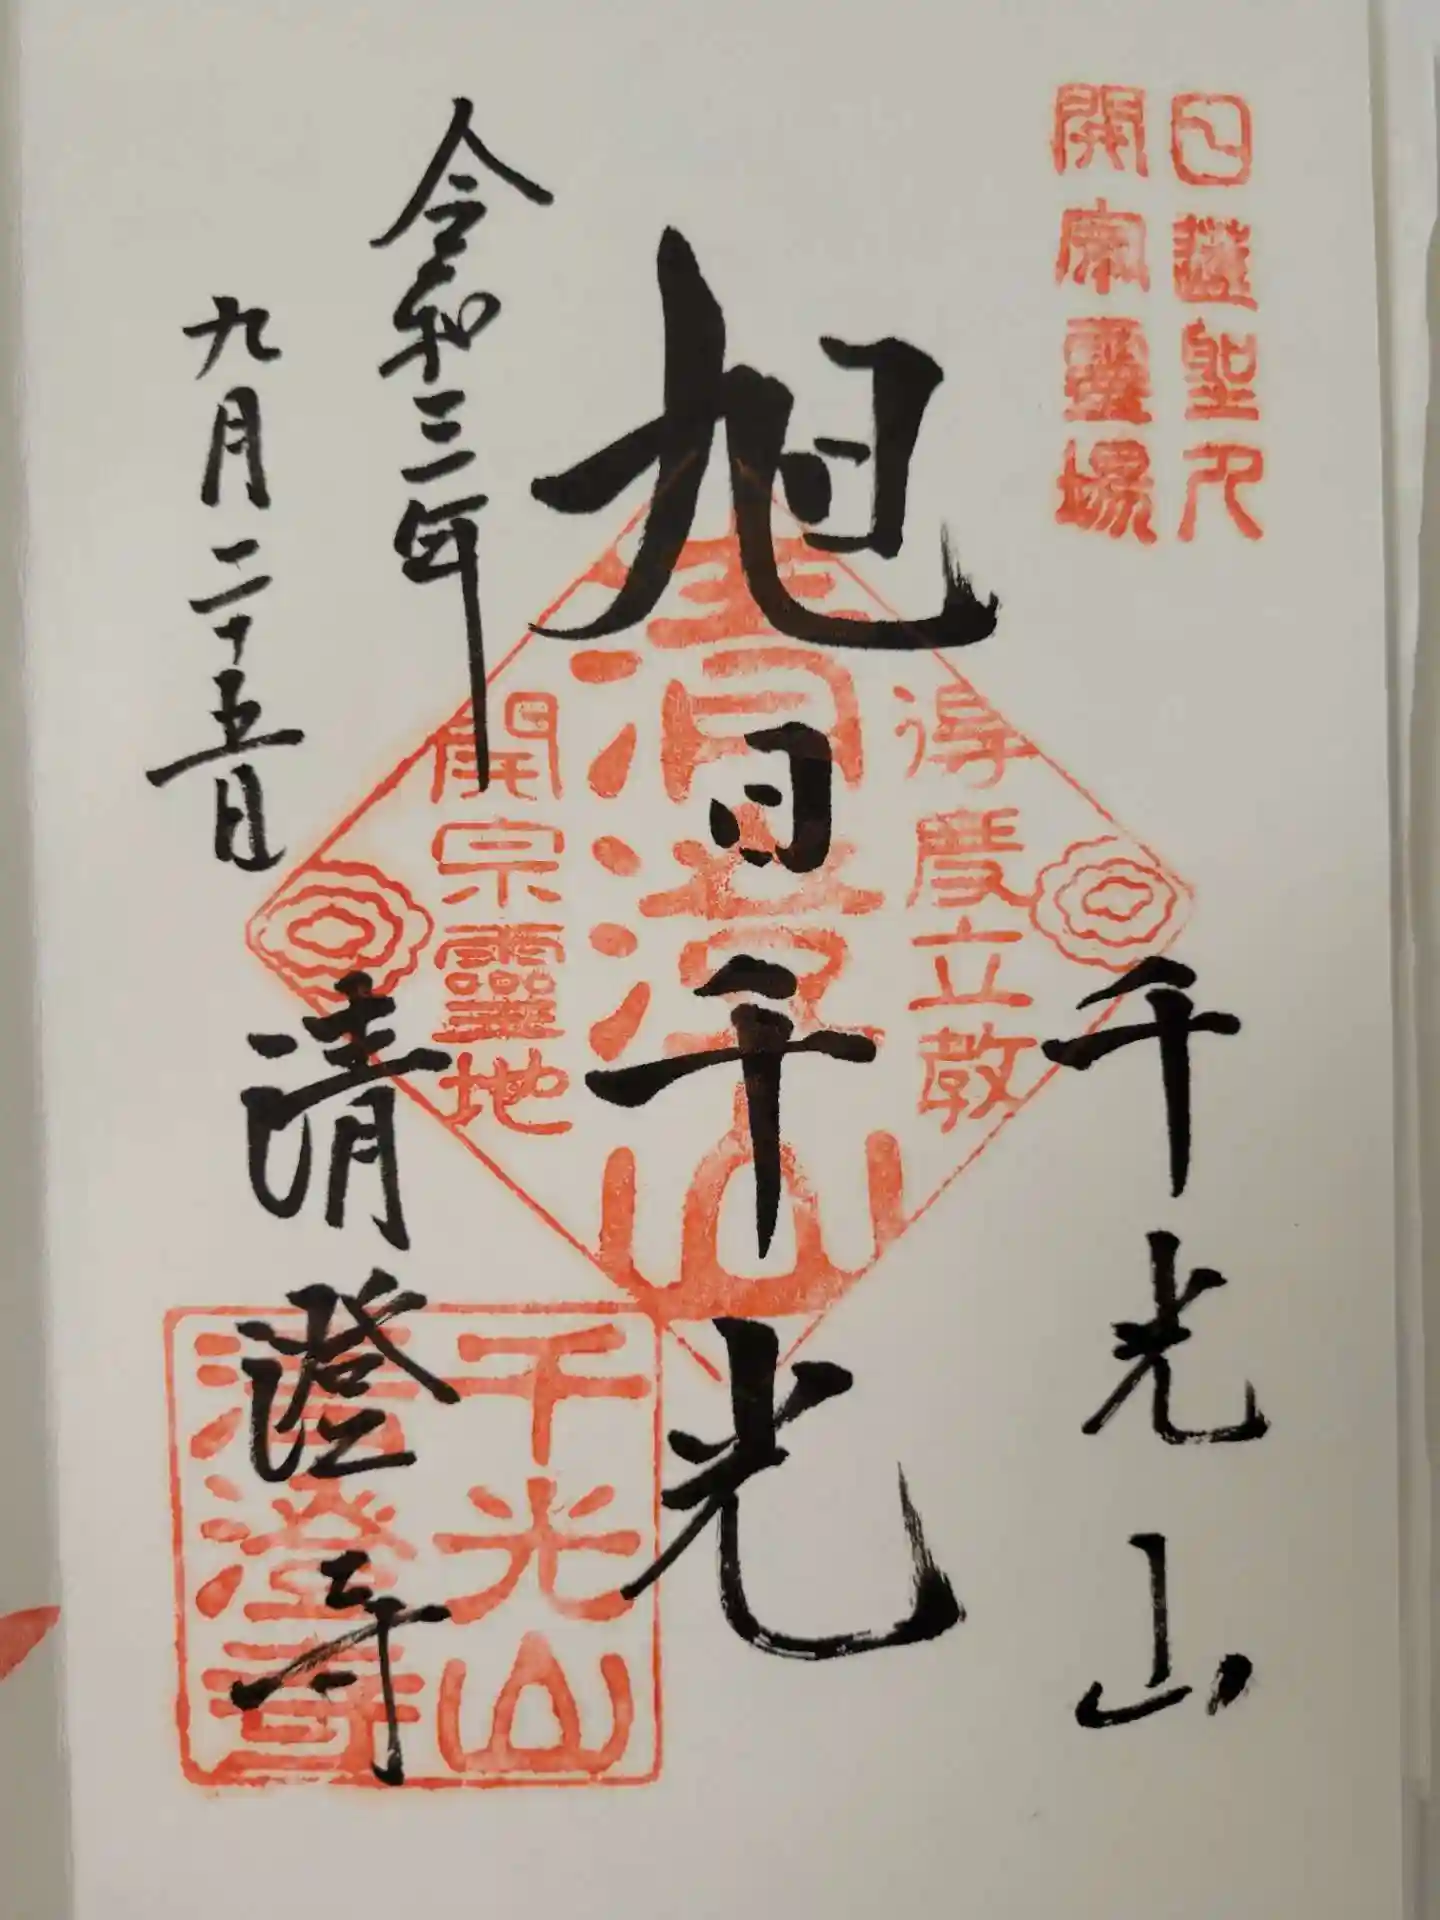 日蓮聖人
開宗霊場
千光山
旭日千光
得度立教
清澄山
開宗靈地
令和三年
九月二十五日
清澄寺
千光山
清澄寺